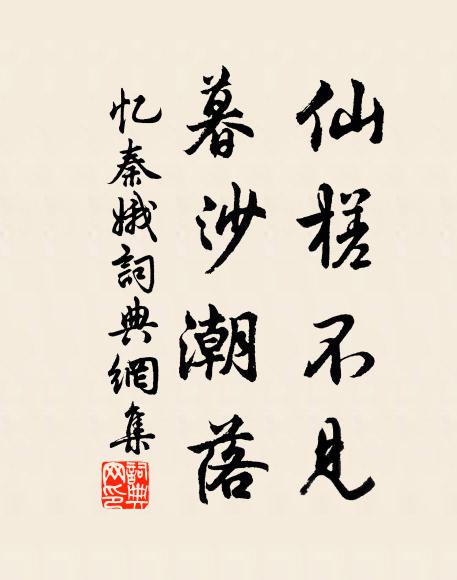 仙槎不见
暮沙潮落
忆秦娥詞典網集
詞典
网印